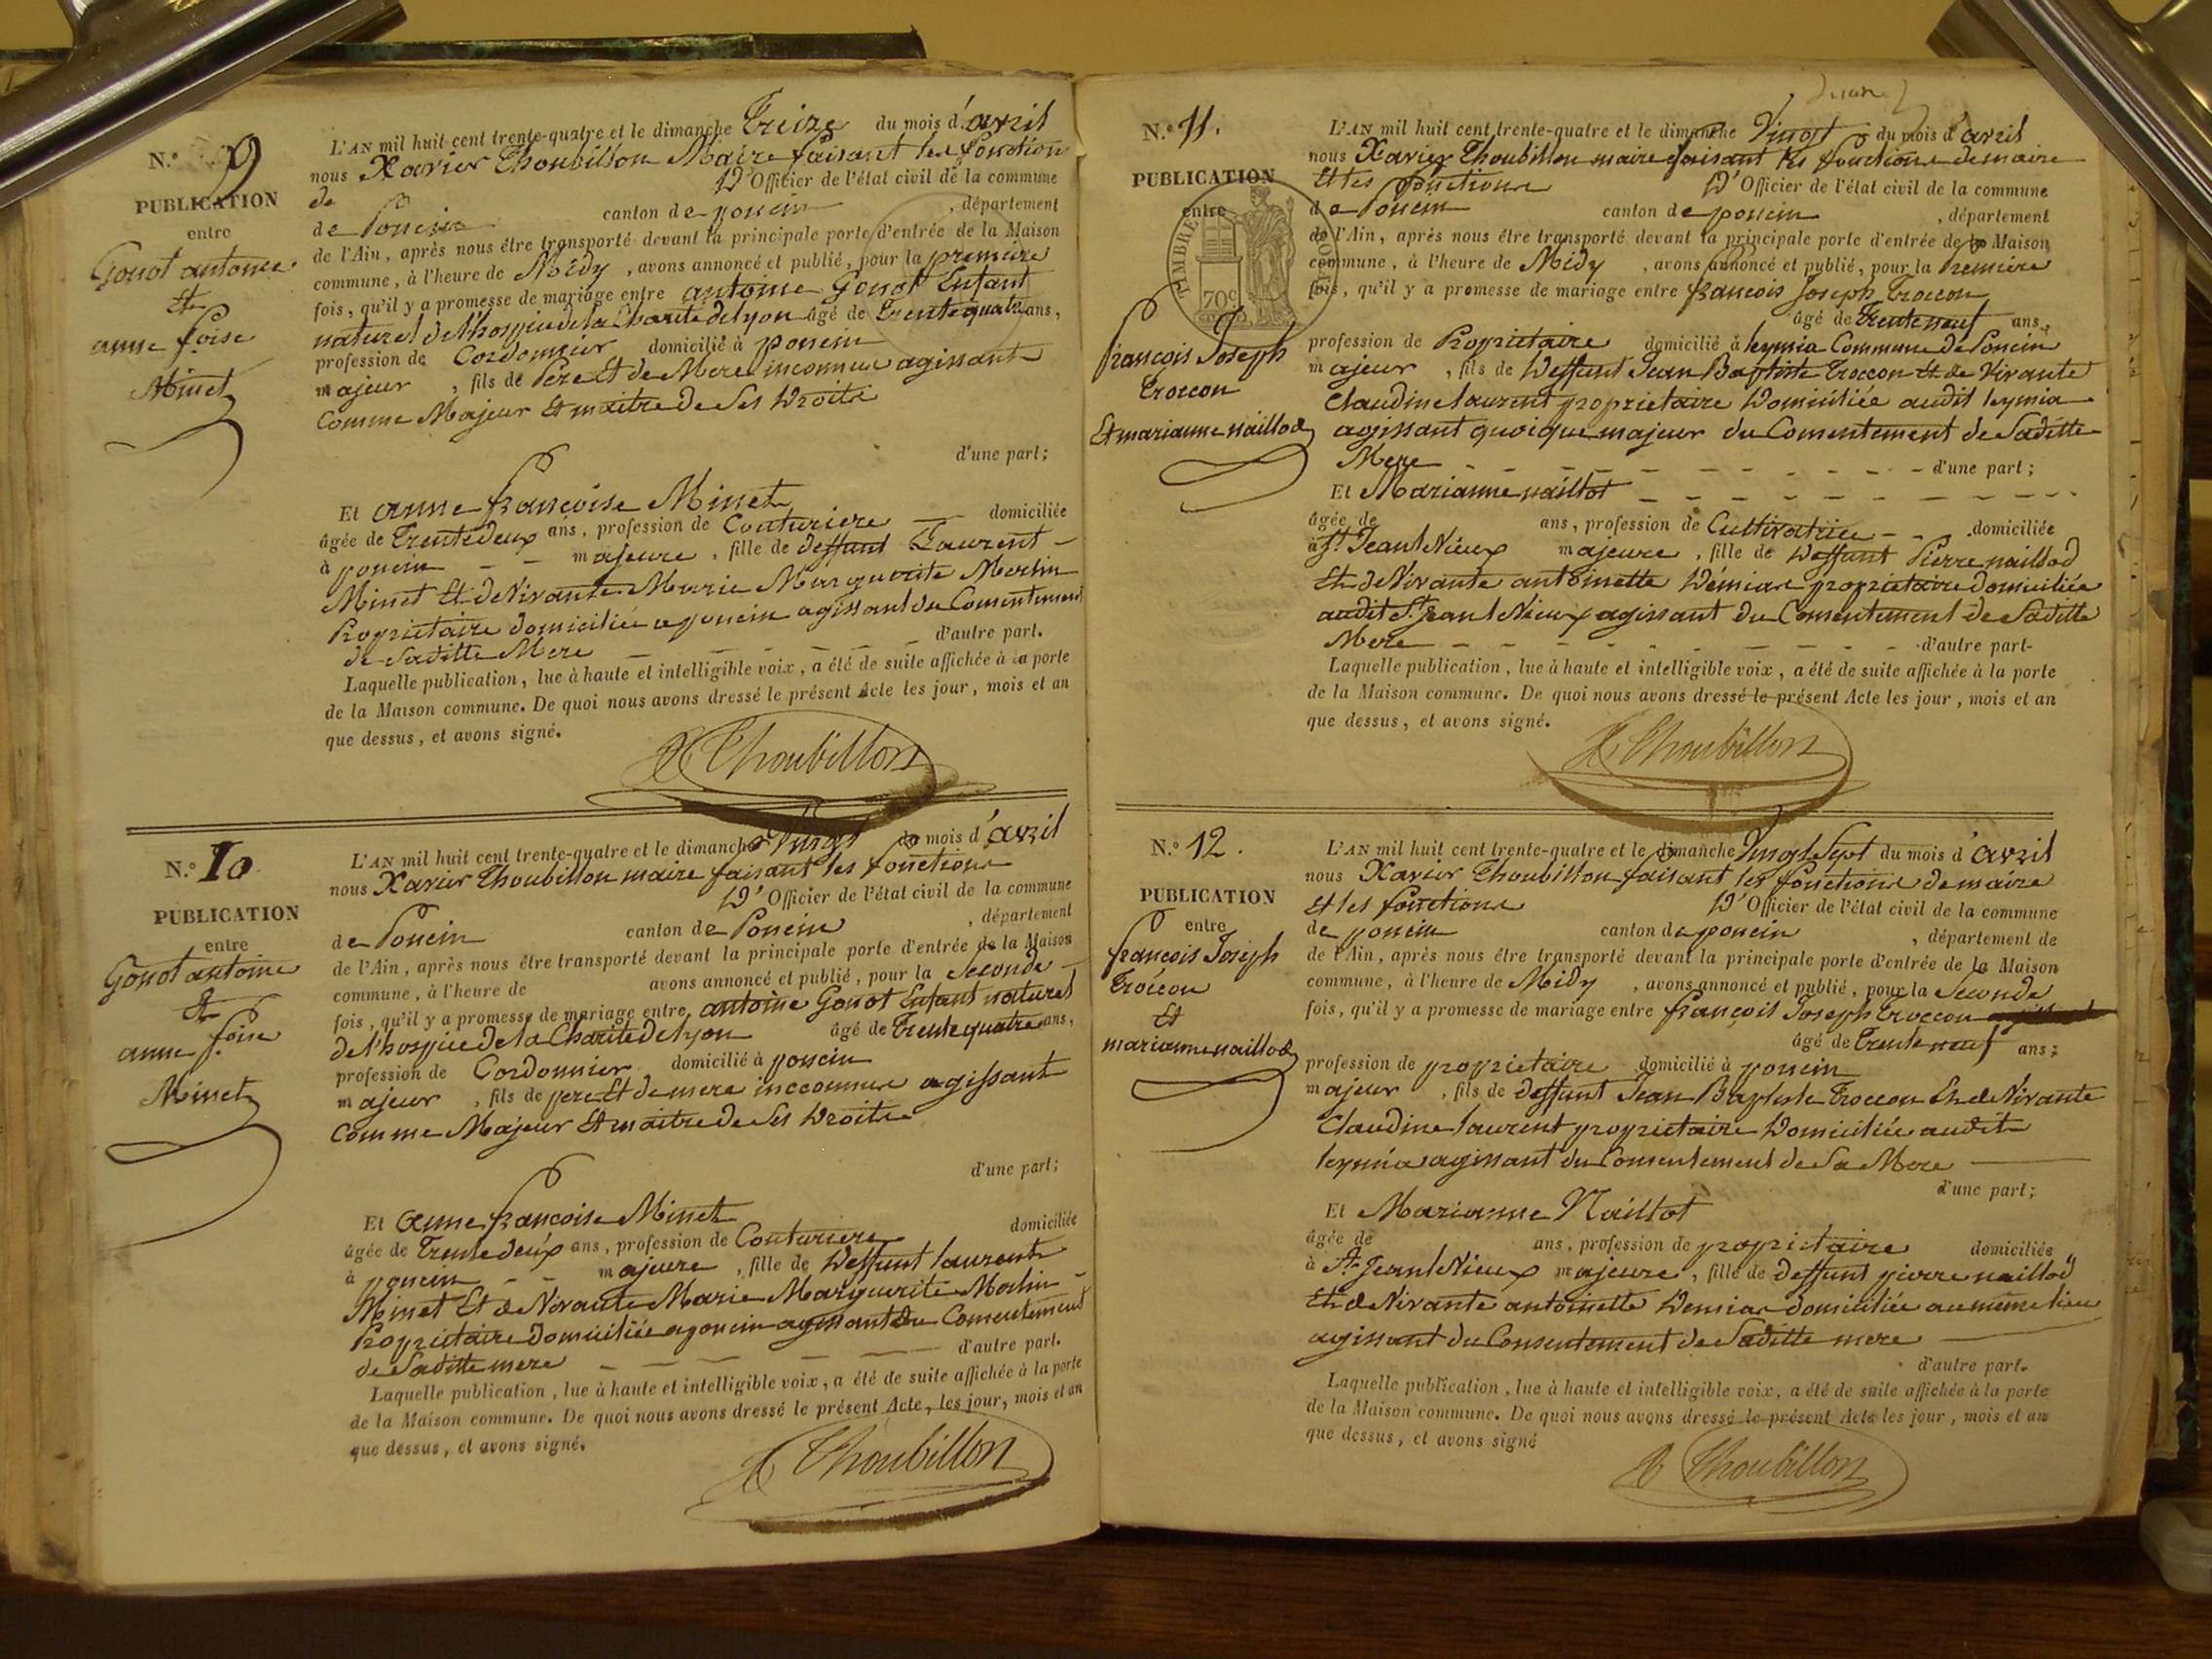 N.º 9
PUBLICATION
entre
Gonot antoine
Et
anne f.oise
Minet
L'AN mil huit cent trente-quatre et le dimanche Treize du mois d'avril
nous Xavier Thoubillon Maire faisant les fonction
de D'Officier de l'état civil de la commune
de Poncin canton de poncin, département
de l'Ain, après nous être transporté devant la principale porte d'entrée de la Maison
commune, à l'heure de Midy, avons annoncé et publié, pour la premiere
fois, qu'il y a promesse de mariage entre antoine Gonot Enfant
naturel de l'hospice de la Charité de lyon âgé de Trente quatre ans,
profession de Cordonnier domicilié à poncin
majeur, fils de Pere Et de Mere inconnue agissant
Comme Majeur Et maitre de Ses Droits
d'une part;
Et anne françoise Minet
âgée de Trente deux ans, profession de Couturiere domiciliée
à poncin majeure, fille de deffunt Laurent
Minet Et de Vivante Marie Marguerite Morlin
Propriétaire domiciliée a poncin agissant du Consentement
de Saditte Mere d'autre part.
Laquelle publication, lue à haute et intelligible voix, a été de suite affichée à la porte
de la Maison commune. De quoi nous avons dressé le présent Acte les jour, mois et an
que dessus, et avons signé.
X Thoubillon
N.º 10
PUBLICATION
entre
Gonot antoine
Et
anne f.oise
Minet
L'AN mil huit cent trente-quatre et le dimanche Vingt du mois d'avril
nous Xavier Thoubillon maire faisant les fonctions
D'Officier de l'état civil de la commune
de Poncin canton de Poncin, département
de l'Ain, après nous être transporté devant la principale porte d'entrée de la Maison
commune, à l'heure de avons annoncé et publié, pour la Seconde
fois, qu'il y a promesse de mariage entre antoine Gonot Enfant naturel
de l'hospice de la Charité de lyon âgé de Trente quatre ans,
profession de Cordonnier domicilié à poncin
majeur, fils de pere Et de mere inconnue agissant
Comme Majeur Et maitre de Ses Droits
d'une part;
Et anne françoise Minet
âgée de Trente deux ans, profession de Couturiere domiciliée
à poncin majeure, fille de Deffunt laurent
Minet Et de Vivante Marie Marguerite Morlin
Propriétaire domiciliée a poncin agissant du Consentement
de Saditte mere d'autre part.
Laquelle publication, lue à haute et intelligible voix, a été de suite affichée à la porte
de la Maison commune. De quoi nous avons dressé le présent Acte, les jour, mois et an
que dessus, et avons signé.
X Thoubillon
N.º 11.
PUBLICATION
entre
TIMBRE ROYAL
70c
françois Joseph
Troccon
Et marianne naillod
L'AN mil huit cent trente-quatre et le dimanche Vingt du mois d'avril
nous Xavier Thoubillon maire faisant les fonctions de maire
Et les fonctions D'Officier de l'état civil de la commune
de Poncin canton de poncin, département
de l'Ain, après nous être transporté devant la principale porte d'entrée de la Maison
commune, à l'heure de Midy, avons annoncé et publié, pour la Premiere
fois, qu'il y a promesse de mariage entre francois Joseph Troccon
âgé de Trente neuf ans,
profession de Propriétaire domicilié à leymia Commune de Poncin
majeur, fils de Deffunt Jean Baptiste Troccon Et de Vivante
Claudine laurent propriétaire Domiciliée audit leymia
agissant quoique majeur du Consentement de Saditte
Mere d'une part;
Et Marianne naillot
âgée de ans, profession de Cultivatrice domiciliée
à St. Jean le Vieux majeure, fille de Deffunt Pierre naillod
Et de Vivante antoinette Démias propriétaire domiciliée
audit St. Jean le Vieux agissant du Consentement de Saditte
Mere d'autre part.
Laquelle publication, lue à haute et intelligible voix, a été de suite affichée à la porte
de la Maison commune. De quoi nous avons dressé le présent Acte les jour, mois et an
que dessus, et avons signé.
X Thoubillon
N.º 12.
PUBLICATION
entre
françois Joseph
Troccon
Et
marianne naillod
L'AN mil huit cent trente-quatre et le dimanche Vingt Sept du mois d'avril
nous Xavier Thoubillon faisant les fonctions de maire
Et les fonctions D'Officier de l'état civil de la commune
de poncin canton de poncin, département de
de l'Ain, après nous être transporté devant la principale porte d'entrée de la Maison
commune, à l'heure de Midy, avons annoncé et publié, pour la Seconde
fois, qu'il y a promesse de mariage entre françois Joseph Troccon
âgé de Trente neuf ans;
profession de propriétaire domicilié à poncin
majeur, fils de deffunt Jean Baptiste Troccon Et de Vivante
Claudine laurent propriétaire Domiciliée audit
leymia agissant du Consentement de Sa Mere
d'une part;
Et Marianne Naillot
âgée de ans, profession de propriétaire domiciliée
à St. Jean le Vieux majeure, fille de deffunt pierre naillod
Et de Vivante antoinette Demias domiciliée au même lieu
agissant du Consentement de Saditte mere
d'autre part.
Laquelle publication, lue à haute et intelligible voix, a été de suite affichée à la porte
de la Maison commune. De quoi nous avons dressé le présent Acte les jour, mois et an
que dessus, et avons signé
X Thoubillon